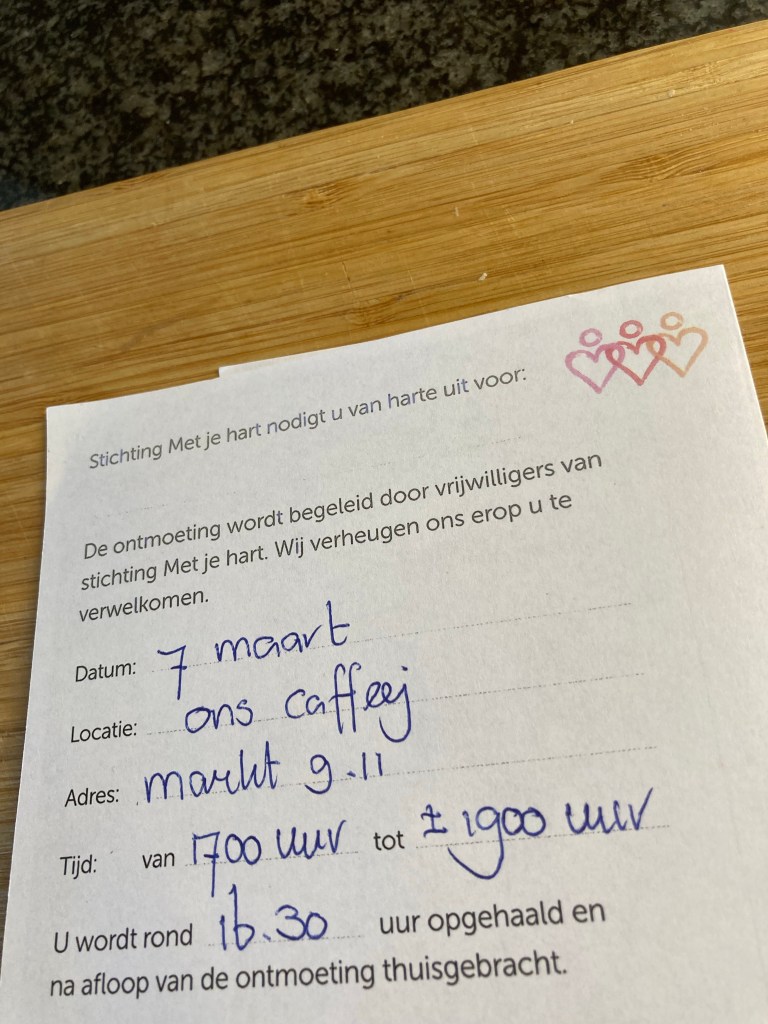 Stichting Met je hart nodigt u van harte uit voor:
De ontmoeting wordt begeleid door vrijwilligers van
stichting Met je hart. Wij verheugen ons erop u te
verwelkomen.
Datum: 7 maart
Locatie: ons caffeej
Adres: markt 9.11
Tijd: van 1700 uur tot ± 1900 uur
U wordt rond 16.30 uur opgehaald en
na afloop van de ontmoeting thuisgebracht.